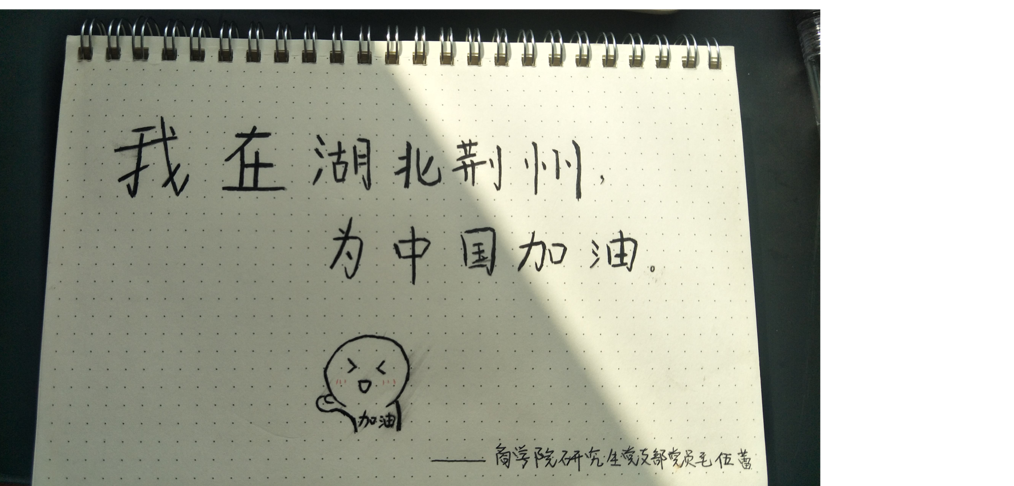 我在湖北荆州,
为中国加油。
加油
——商学院研究生党支部党员毛伍蕾